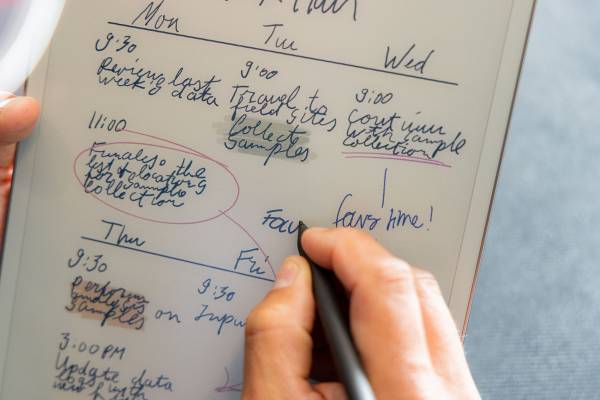 Mon
Tue
Wed
9:30
Review last
week's data
9:00
Travel to
field sites
Collect
samples
9:00
Continue
with sample
collection
11:00
Finalise the
list & locations
for sample
collection
favs time!
Thu
Fri
9:30
Perform
analysis
samples
on
9:30
Inpu
3:00 PM
Update data
logs with
new